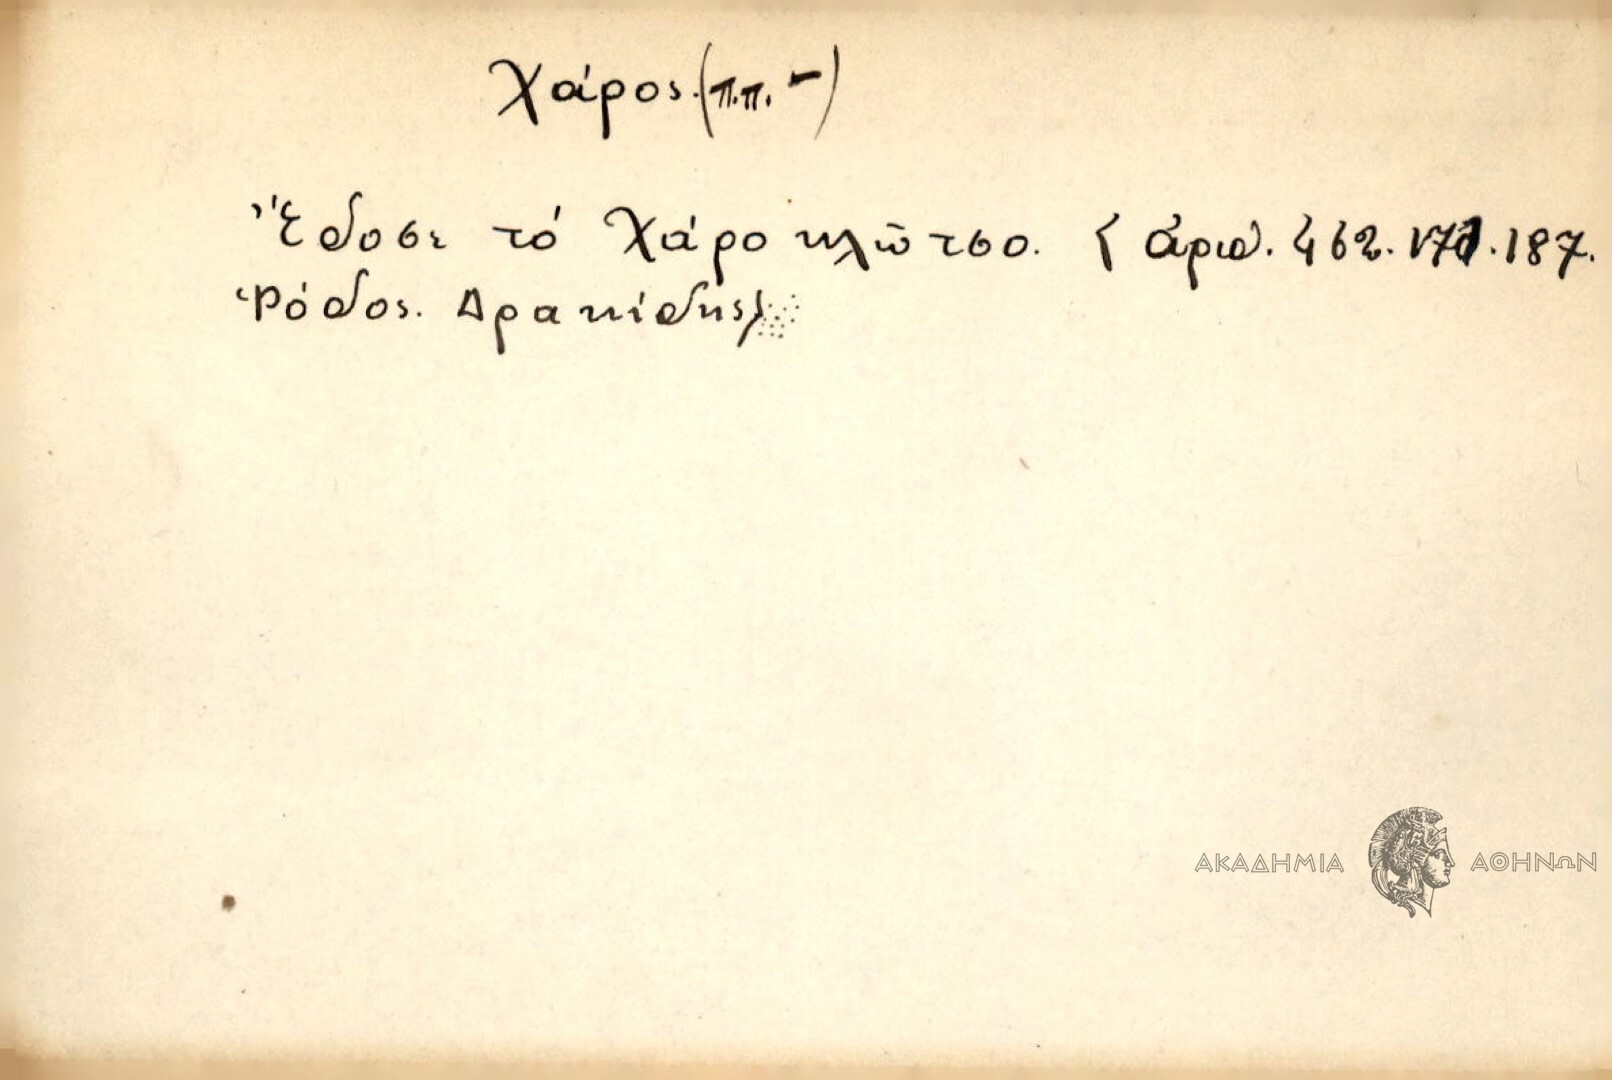 Χάρος. (π.π. -)
Ἔδοσε τό Χάρο κλῶτσο. (ἀριθ. 462. 171. 187.
Ῥόδος. Δρακίδης)
ΑΚΑΔΗΜΙΑ ΑΘΗΝΩΝ